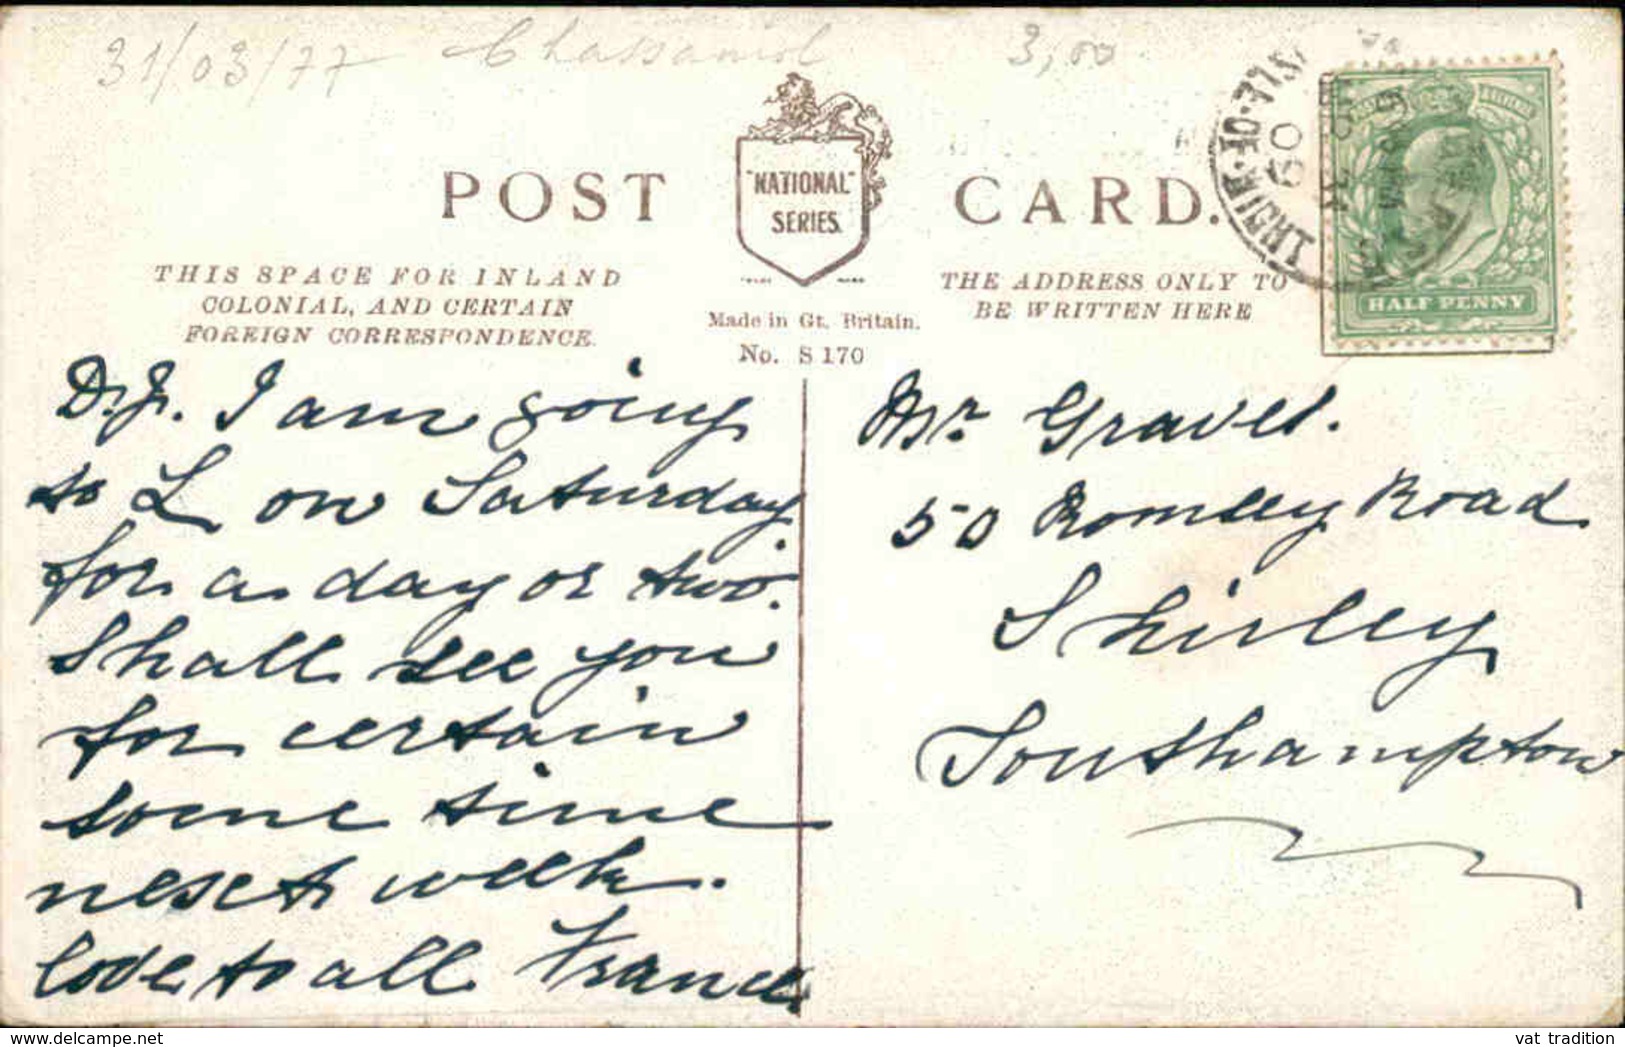 31/03/77 Chassaniol 3,00
POST CARD.
"NATIONAL"
SERIES.
TRADE MARK
THIS SPACE FOR INLAND
COLONIAL, AND CERTAIN
FOREIGN CORRESPONDENCE.
Made in Gt. Britain.
No. S 170
THE ADDRESS ONLY TO
BE WRITTEN HERE
ISLE-OF-WIGHT
09
HALF PENNY
D.J. I am going
to L on Saturday
for a day or two.
Shall see you
for certain
some time
next week.
love to all
Mr Graves.
50 Romsey Road
Shirley
Southampton
vat_tradition
delcampe.net